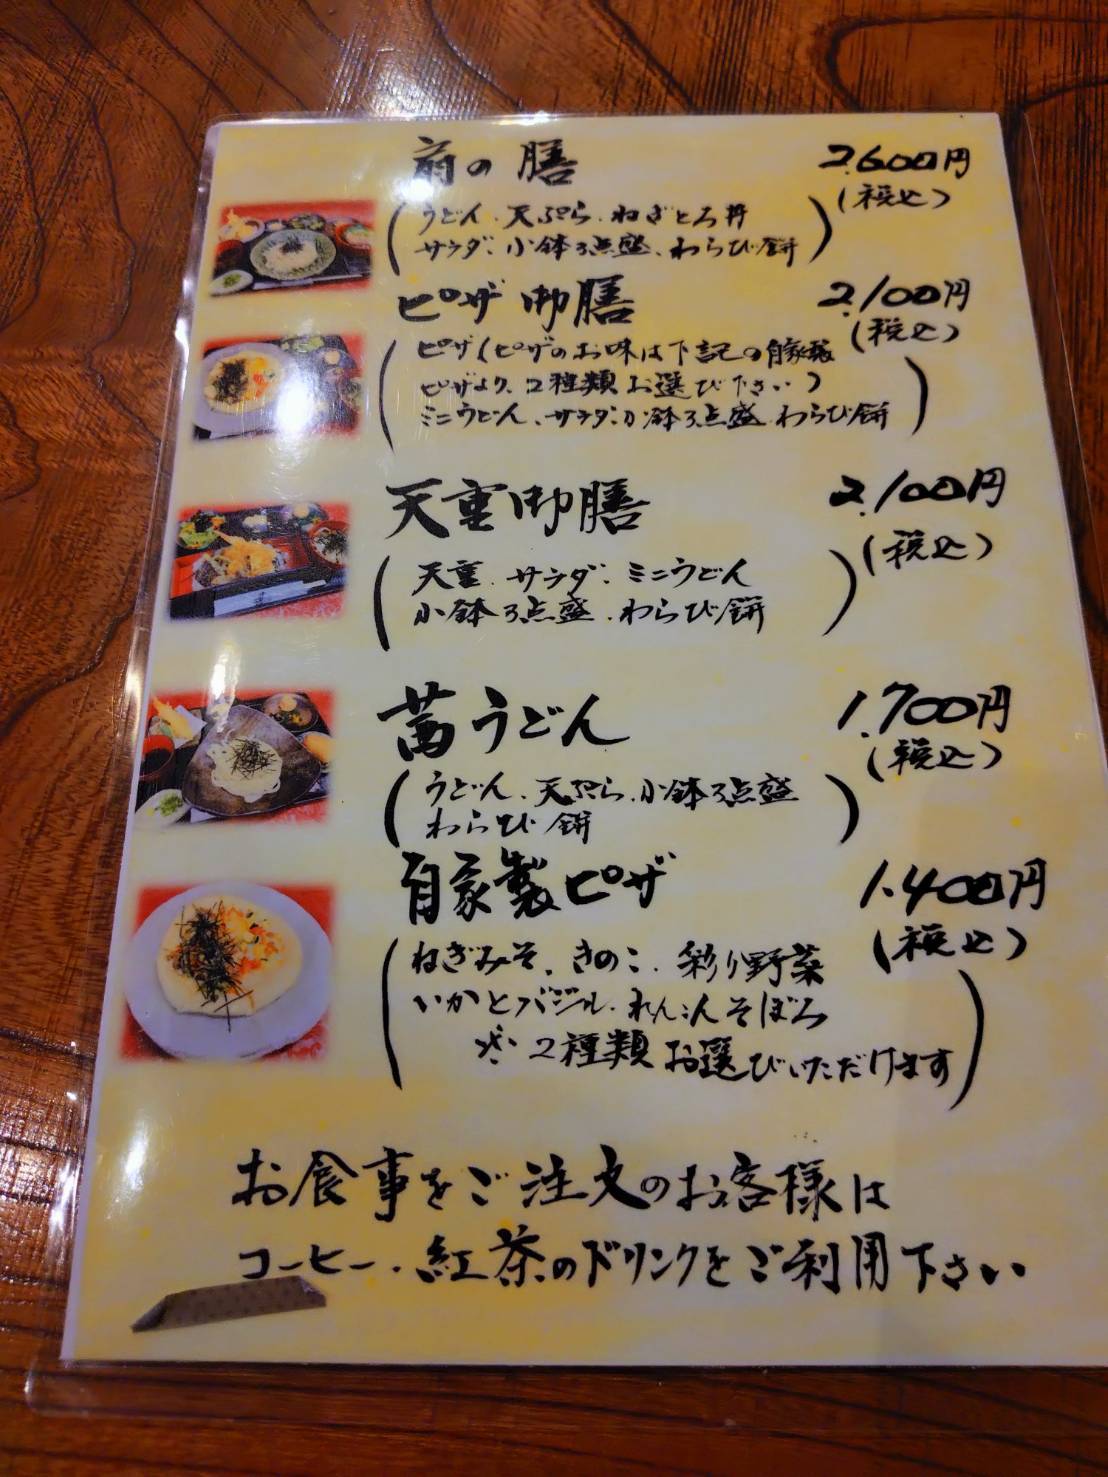 の膳 2.600円
(税込)
(うどん、天ぷら、ねぎとろ丼
サラダ、小鉢3点盛、わらび餅)
ピザ御膳 2.100円
(税込)
(ピザ(ピザのお味は下記の自家製
ピザより、2種類お選び下さい)
ミニうどん、サラダ、小鉢3点盛、わらび餅)
天重御膳 2.100円
(税込)
(天重、サラダ、ミニうどん
小鉢3点盛、わらび餅)
茜うどん 1.700円
(税込)
(うどん、天ぷら、小鉢3点盛
わらび餅)
自家製ピザ 1.400円
(税込)
(ねぎみそ、きのこ、彩り野菜
いかとバジル、れんこんそぼろ
※2種類お選びいただけます)
お食事をご注文のお客様は
コーヒー、紅茶のドリンクをご利用下さい